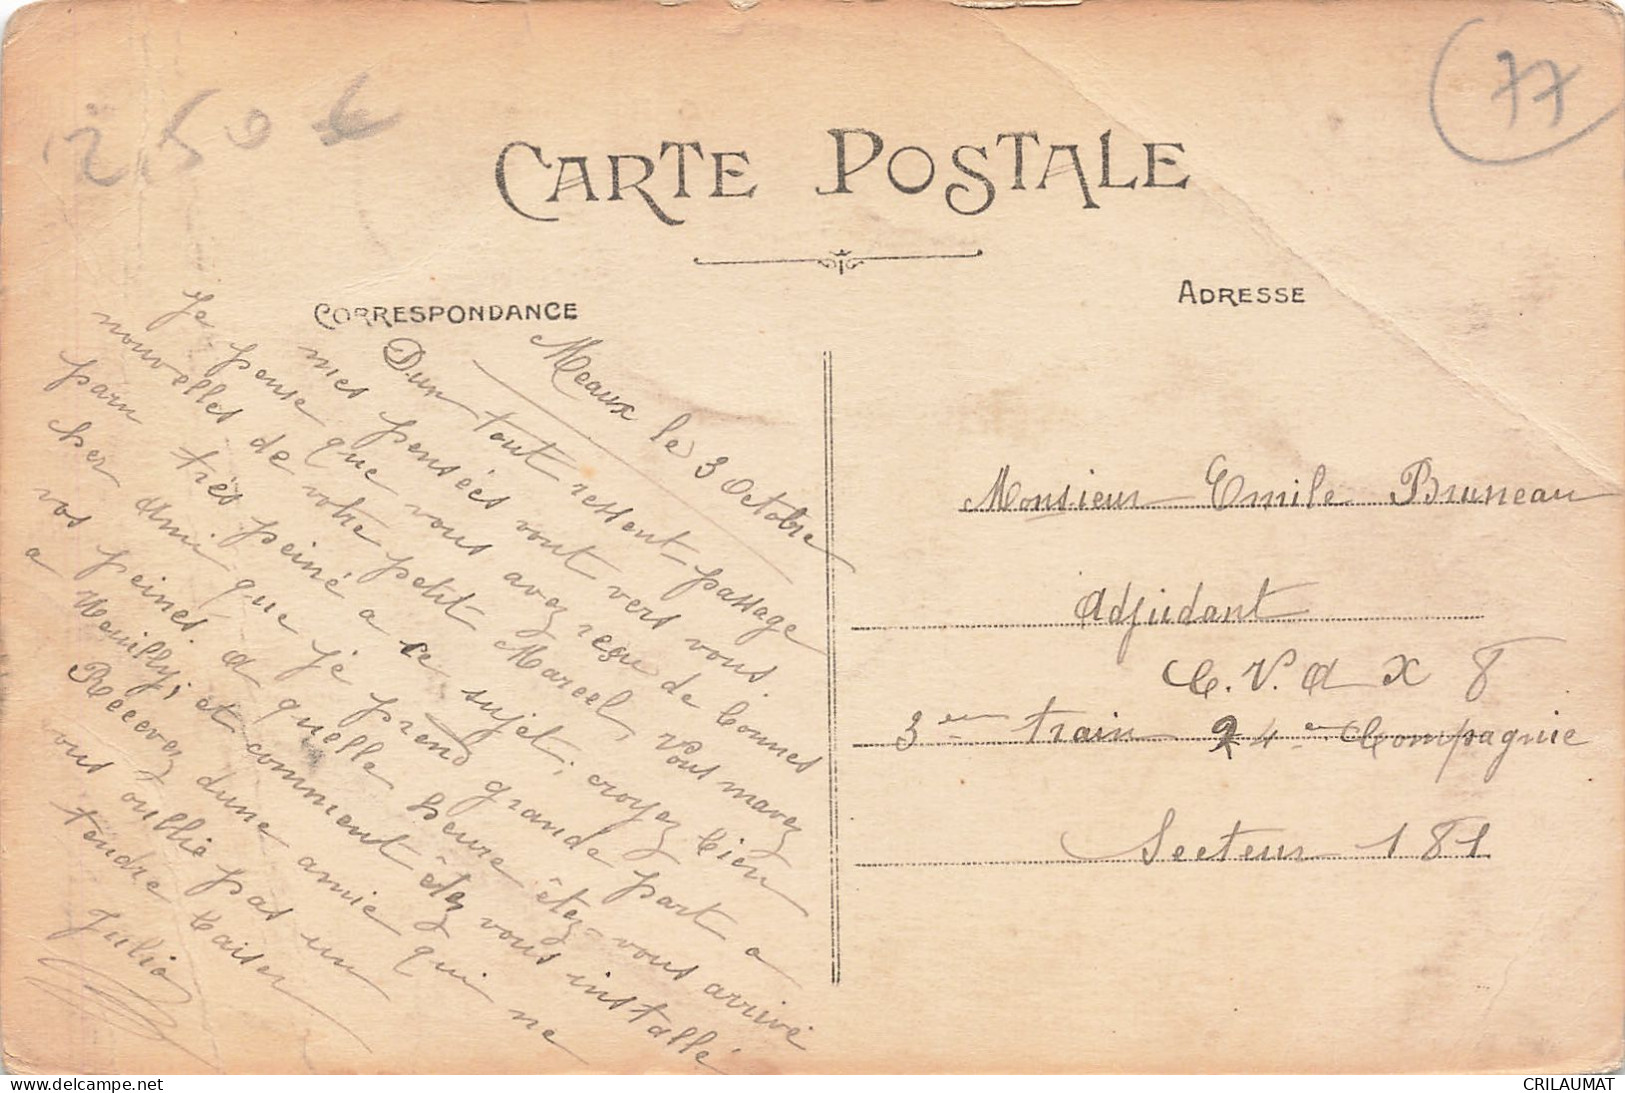 2,50 €
77
CARTE POSTALE
CORRESPONDANCE
ADRESSE
Meaux le 3 Octobre
D'un tout ressent passage
mes pensées vont vers vous.
Je pense que vous avez reçu de bonnes
nouvelles de votre petit Marcel, Vous mavez
paru très peiné a ce sujet, croyez bien
cher Ami que je prend grande part a
vos peines. A quelle heure êtez-vous arrivé
a Neuilly, et comment êtez vous installé
Recevez dune amie qui ne
vous oublie pas un
tendre baiser
Julia
Monsieur Emile Bruneau
Adjudant
C.V.A X 8
3e train 24e Compagnie
Secteur 181
CRILAUMAT
www.delcampe.net